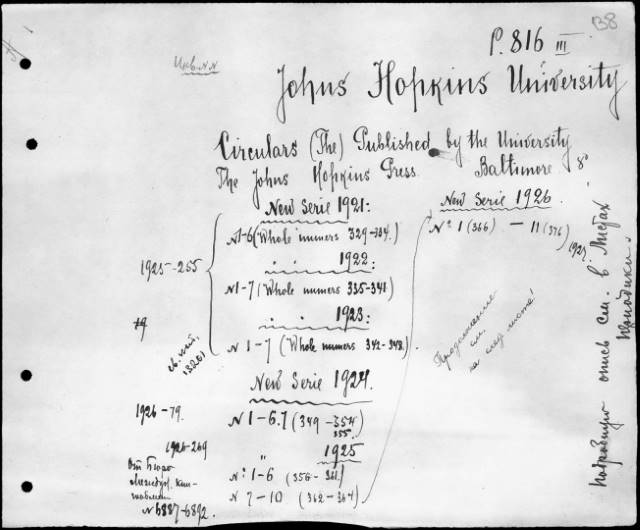 B8
P. 816 III
Инв. N.N
Johns Hopkins University
Circulars (The) Published by the University
The Johns Hopkins Press. Baltimore 8°
New Serie 1921:
N1-6 (Whole numers 329-334.)
1922:
1925-255
N1-7 (Whole numers 335-341)
1923:
N 1-7 (Whole numers 342-348)
New Serie 1924.
1926-79.
N 1-6.7 (349-354)
355.
1926-269
" 1925
От Бюро
Междунар. кни-
гообмена
N 6887-6892.
N: 1-6 (356-361)
N 7-10 (362-364)
New Serie 1926.
N: 1 (366) - 11 (376)
1927
Продолжение
см.
на след. листе!
Подробную опись см. в Листах